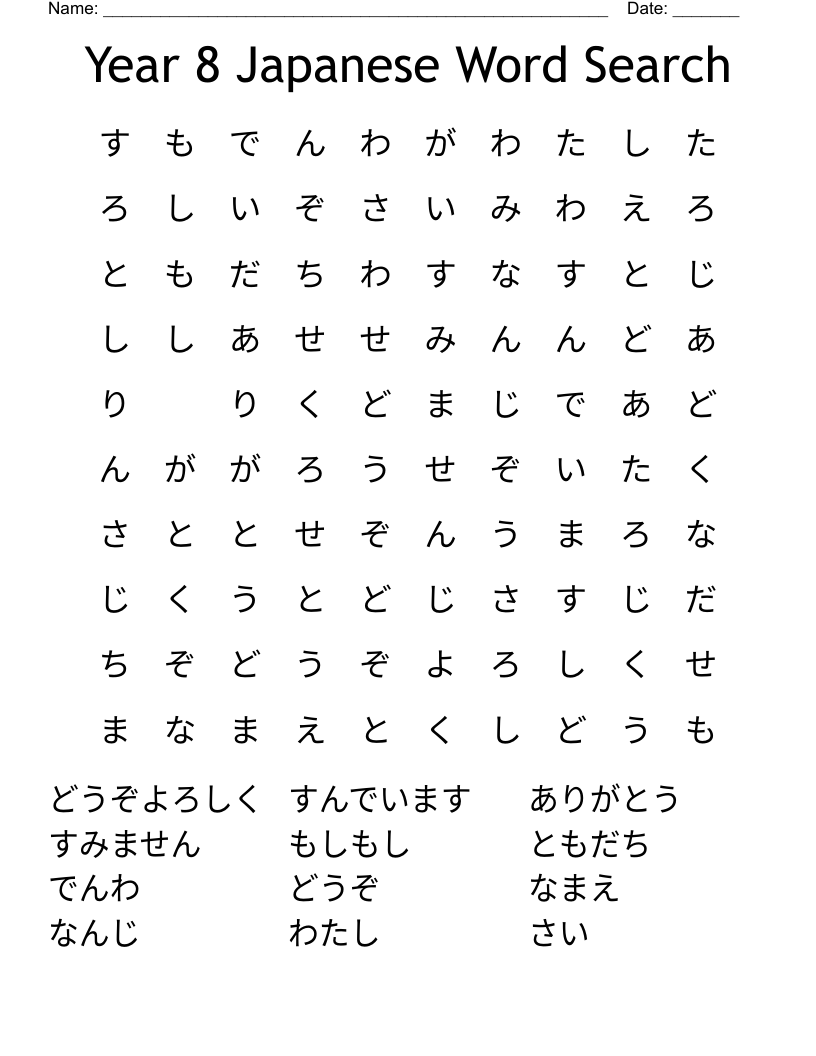 Name: _____________________________________________________ Date: _______
Year 8 Japanese Word Search
す も で ん わ が わ た し た
ろ し い ぞ さ い み わ え ろ
と も だ ち わ す な す と じ
し し あ せ せ み ん ん ど あ
り り く ど ま じ で あ ど
ん が が ろ う せ ぞ い た く
さ と と せ ぞ ん う ま ろ な
じ く う と ど じ さ す じ だ
ち ぞ ど う ぞ よ ろ し く せ
ま な ま え と く し ど う も
どうぞよろしく すんでいます ありがとう
すみません もしもし ともだち
でんわ どうぞ なまえ
なんじ わたし さい